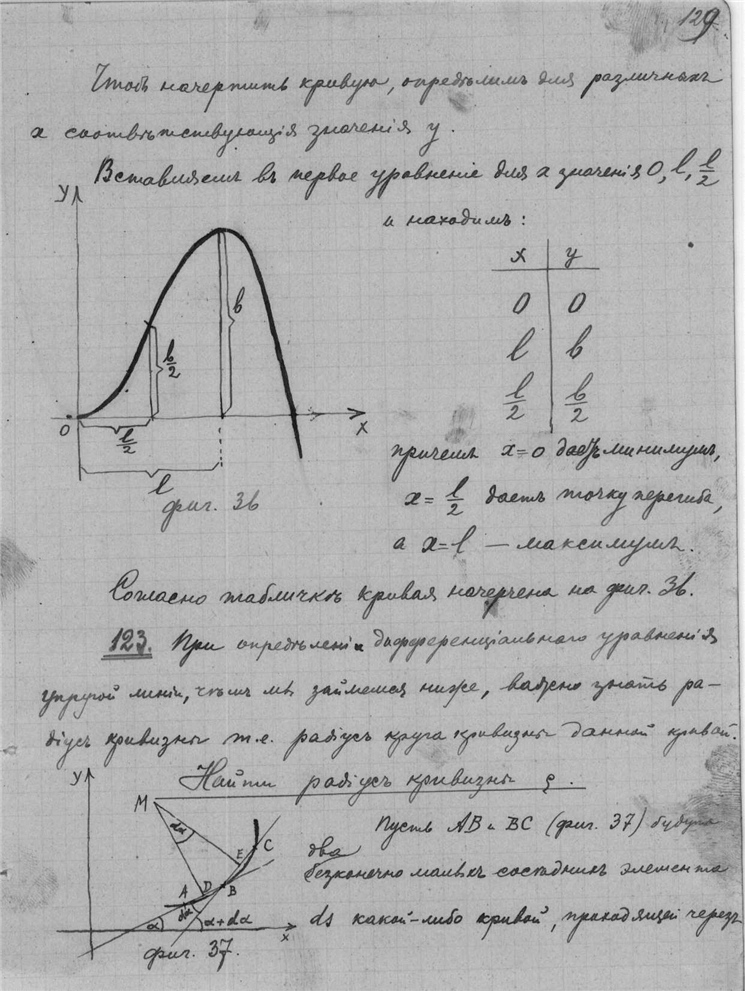 129
Чтобъ начертить кривую, опредѣлимъ для различныхъ
x соотвѣтствующія значенія y.
Вставляемъ въ первое уравненіе для x значенія 0, l, l/2
и находимъ:
y
x y
0 0
l b
l/2 b/2
b
b/2
0
l/2
x
l
фиг. 36
причемъ x=0 даетъ минимумъ,
x = l/2 даетъ точку перегиба,
а x=l — максимумъ.
Согласно табличкѣ кривая начерчена на фиг. 36.
123. При опредѣленіи дифференціальнаго уравненія
упругой линіи, чѣмъ мы займемся ниже, важно знать ра-
діусъ кривизны т.е. радіусъ круга кривизны данной кривой.
Найти радіусъ кривизны ρ.
y
M
dα
E
C
A D B
dα
α
α+dα
x
фиг. 37.
Пусть AB и BC (фиг. 37) будутъ
два
безконечно малыхъ сосѣднихъ элемента
ds какой-либо кривой, проходящей черезъ